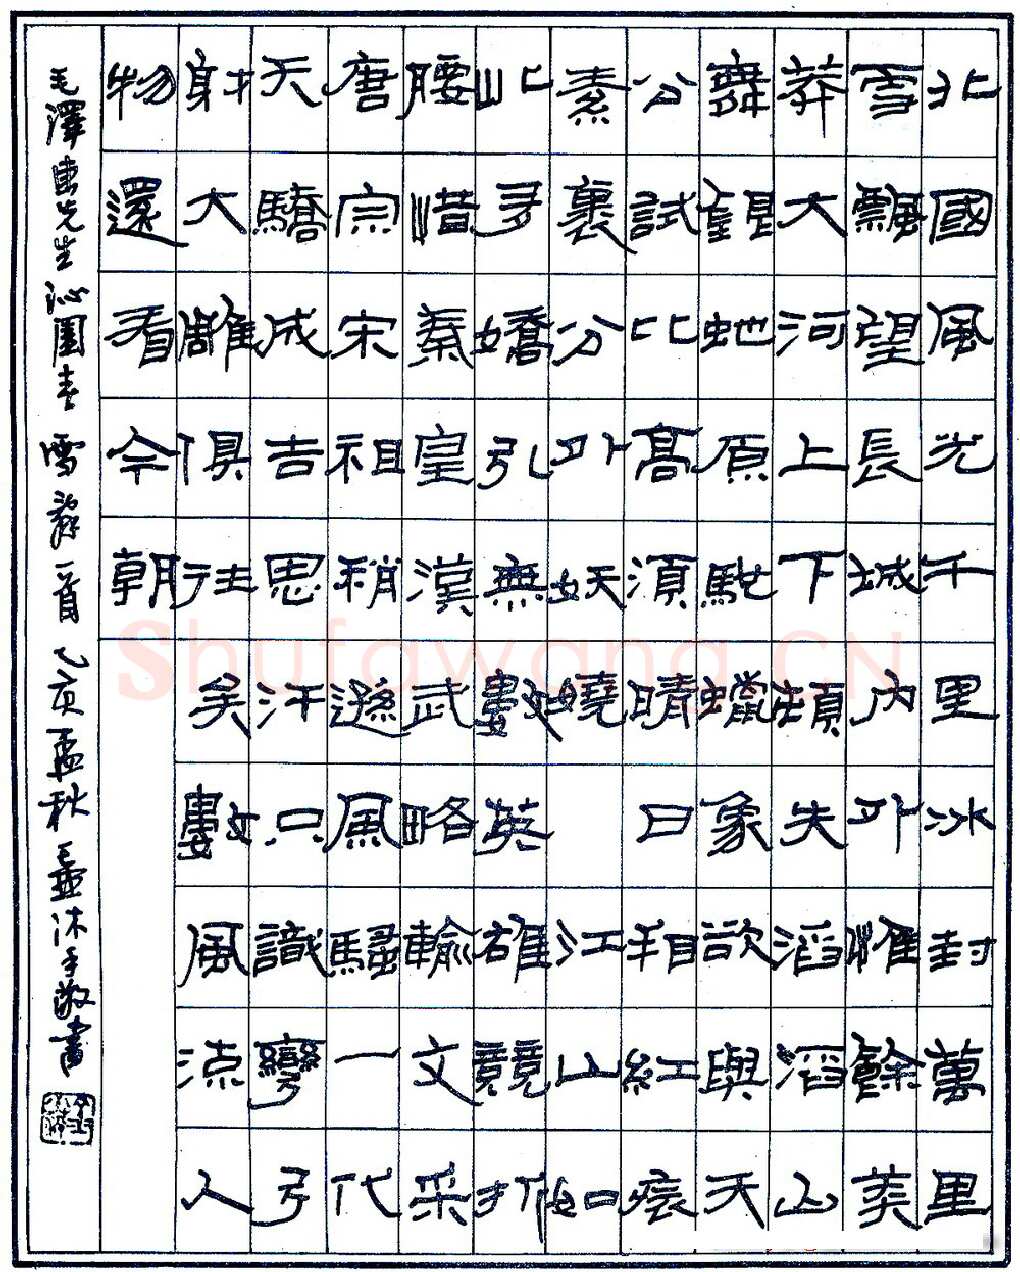 北國風光千里冰封萬里
雪飄望長城內外惟餘莽
莽大河上下頓失滔滔山
舞銀蛇原馳蠟象欲與天
公試比高須晴日看紅裝
素裹分外妖嬈 江山如
此多嬌引無數英雄競折
腰惜秦皇漢武略輸文采
唐宗宋祖稍遜風騷一代
天驕成吉思汗只識彎弓
射大雕俱往矣數風流人
物還看今朝
毛澤東先生沁園春 雪辭一首 乙亥孟秋 沐手敬書
Shufawang.CN